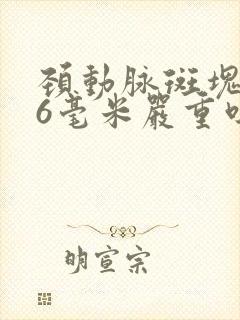 頚動脉斑塊
6毫米嚴重吗
明宣宗